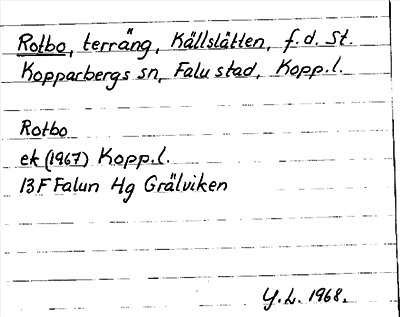 Rotbo, terräng, Källslätten, f.d. St.
Kopparbergs sn, Falu stad, Kopp.l.
Rotbo
ek (1967) Kopp.l.
13F Falun Hg Grälviken
Y.L. 1968.